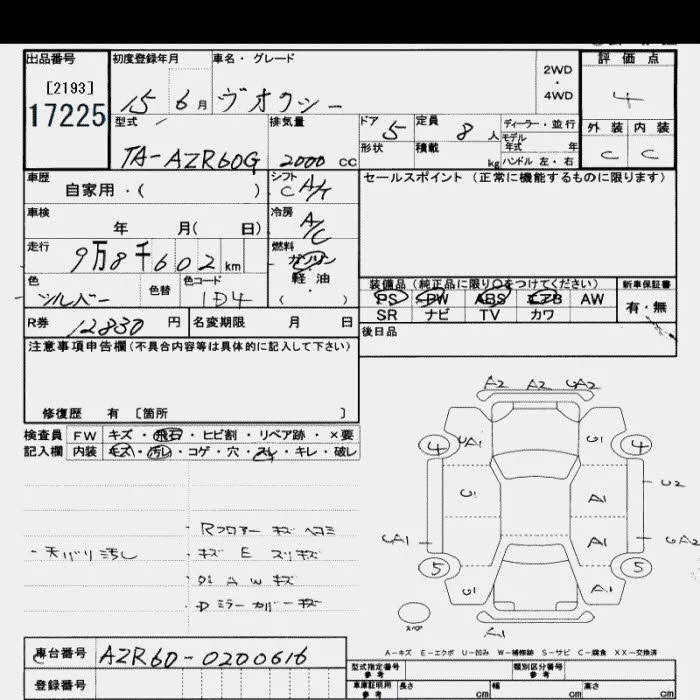 出品番号 初度登録年月 車名・グレード 2WD・4WD 評価点
[2193]
17225 15 6月 ヴオクシー 4
型式 排気量 ドア 定員 ディーラー・並行 外装 内装
TA-AZR60G 2000 CC 5 8人 モデル年式 年 C C
形状 積載 kg ハンドル 左・右
車歴 シフト セールスポイント(正常に機能するものに限ります)
自家用・( ) C A/T
車検 冷房
年 月( 日) A/C
走行 燃料
9万8千602 km ガソリン
軽油
( )
色 色替 色コード
シルバー 1D4
装備品(純正品に限り○をつけてください) 新車保証書
PS PW ABS エアB AW 有・無
SR ナビ TV カワ
R券 12830 円 名変期限 月 日 後日品
注意事項申告欄(不具合内容等は具体的に記入して下さい)
修復歴 有 [箇所 ]
検査員 FW キズ・飛石・ヒビ割・リペア跡・×要
記入欄 内装 キズ・汚レ・コゲ・穴・スレ・キレ・破レ
A2 A2
4 A1 U1 4
U1 A1 U2
A1 A1
5 U1 A1 5
A1
スペア
・Rフロアー キズ ヘコミ
・天バリ汚レ
・キズ E スリキズ
・A W キズ
・Dミラーカバーキズ
A-キズ E-エクボ U-凹み W-補修跡 S-サビ C-腐食 XX-交換済
車台番号 AZR60-0200616
型式指定番号 参考 類別区分番号 参考
登録番号 車庫証明用 参考 長さ cm 幅 cm 高さ cm